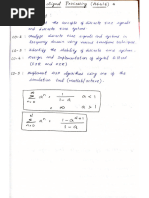 Signal Processing (Analog)
the concepts of discrete time signals
and discrete time systems
CO-2 - Analyze discrete time signals and systems in
frequency domain using various transform techniques
CO-3 - Identify the stability of discrete time system
CO-4 - Design and Implementation of digital filters
(FIR and IIR)
CO-5 - Implement DSP algorithms using one of the
simulation tool (matlab/octave)
∞ Σ n=0 aⁿ = 1 / 1-a a < 1
Σ n=0 aⁿ = 1-a / 1-a